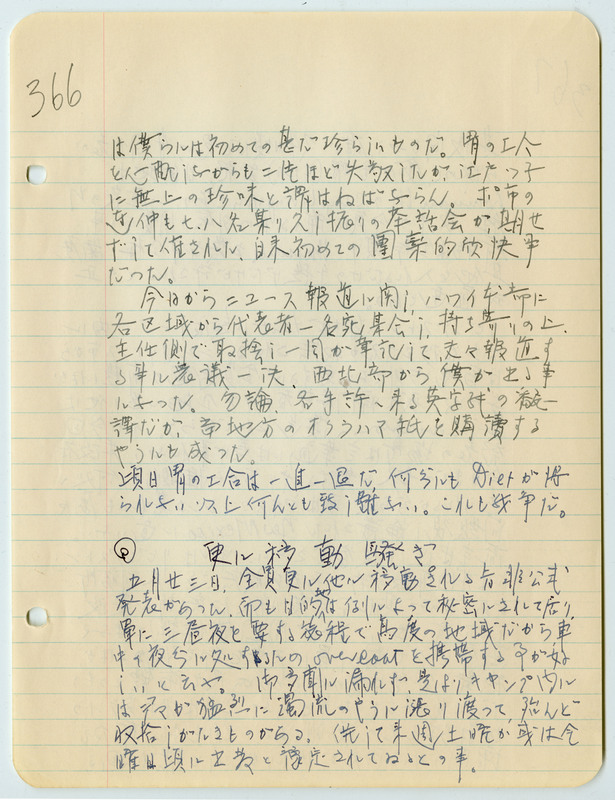 366
は僕らには初めての甚だ珍らしいものだ。胃の工合
を心配しながらも二個ほど失敬したが、江戸っ子
に無上の珍味と謂はねばならん。ポ市の
連中も七、八名集り久し振りの座談会が期せ
ずして催された、自来初めての團欒的欣快事
だった。
今日からニュース報道に関し、ハワイ本部に
各区域から代表者一名宛集会し、持ち寄りの上、
主任側で取捨し一同が筆記して、夫々報道す
る事に衆議一決、西北部から僕が出る事
になった。勿論、各手許へ来る英字紙の飜
譯だが、当地方のオクラハマ紙を購讀する
やうにも成った。
頃日胃の工合は一進一退だ、何分にも Diet が得
られない以上何んとも致し難ない。これも戦争だ。
更に移動騒ぎ
五月廿三日、全員更に他に移動される旨非公式
発表があった、而も目的は例によって秘密にされて居り、
単に三昼夜を要する旅程で高度の地域だから車
中で夜分に処するため overcoat を携帯する事が好
しいと云ふ。御多聞に漏れず、是よりキャンプ内に
はデマが猛烈に濁流のやうに漲り渡って、殆んど
収拾しがたきものがある。併して来週土曜か或は金
曜日頃に出発と豫定されてゐるとの事。